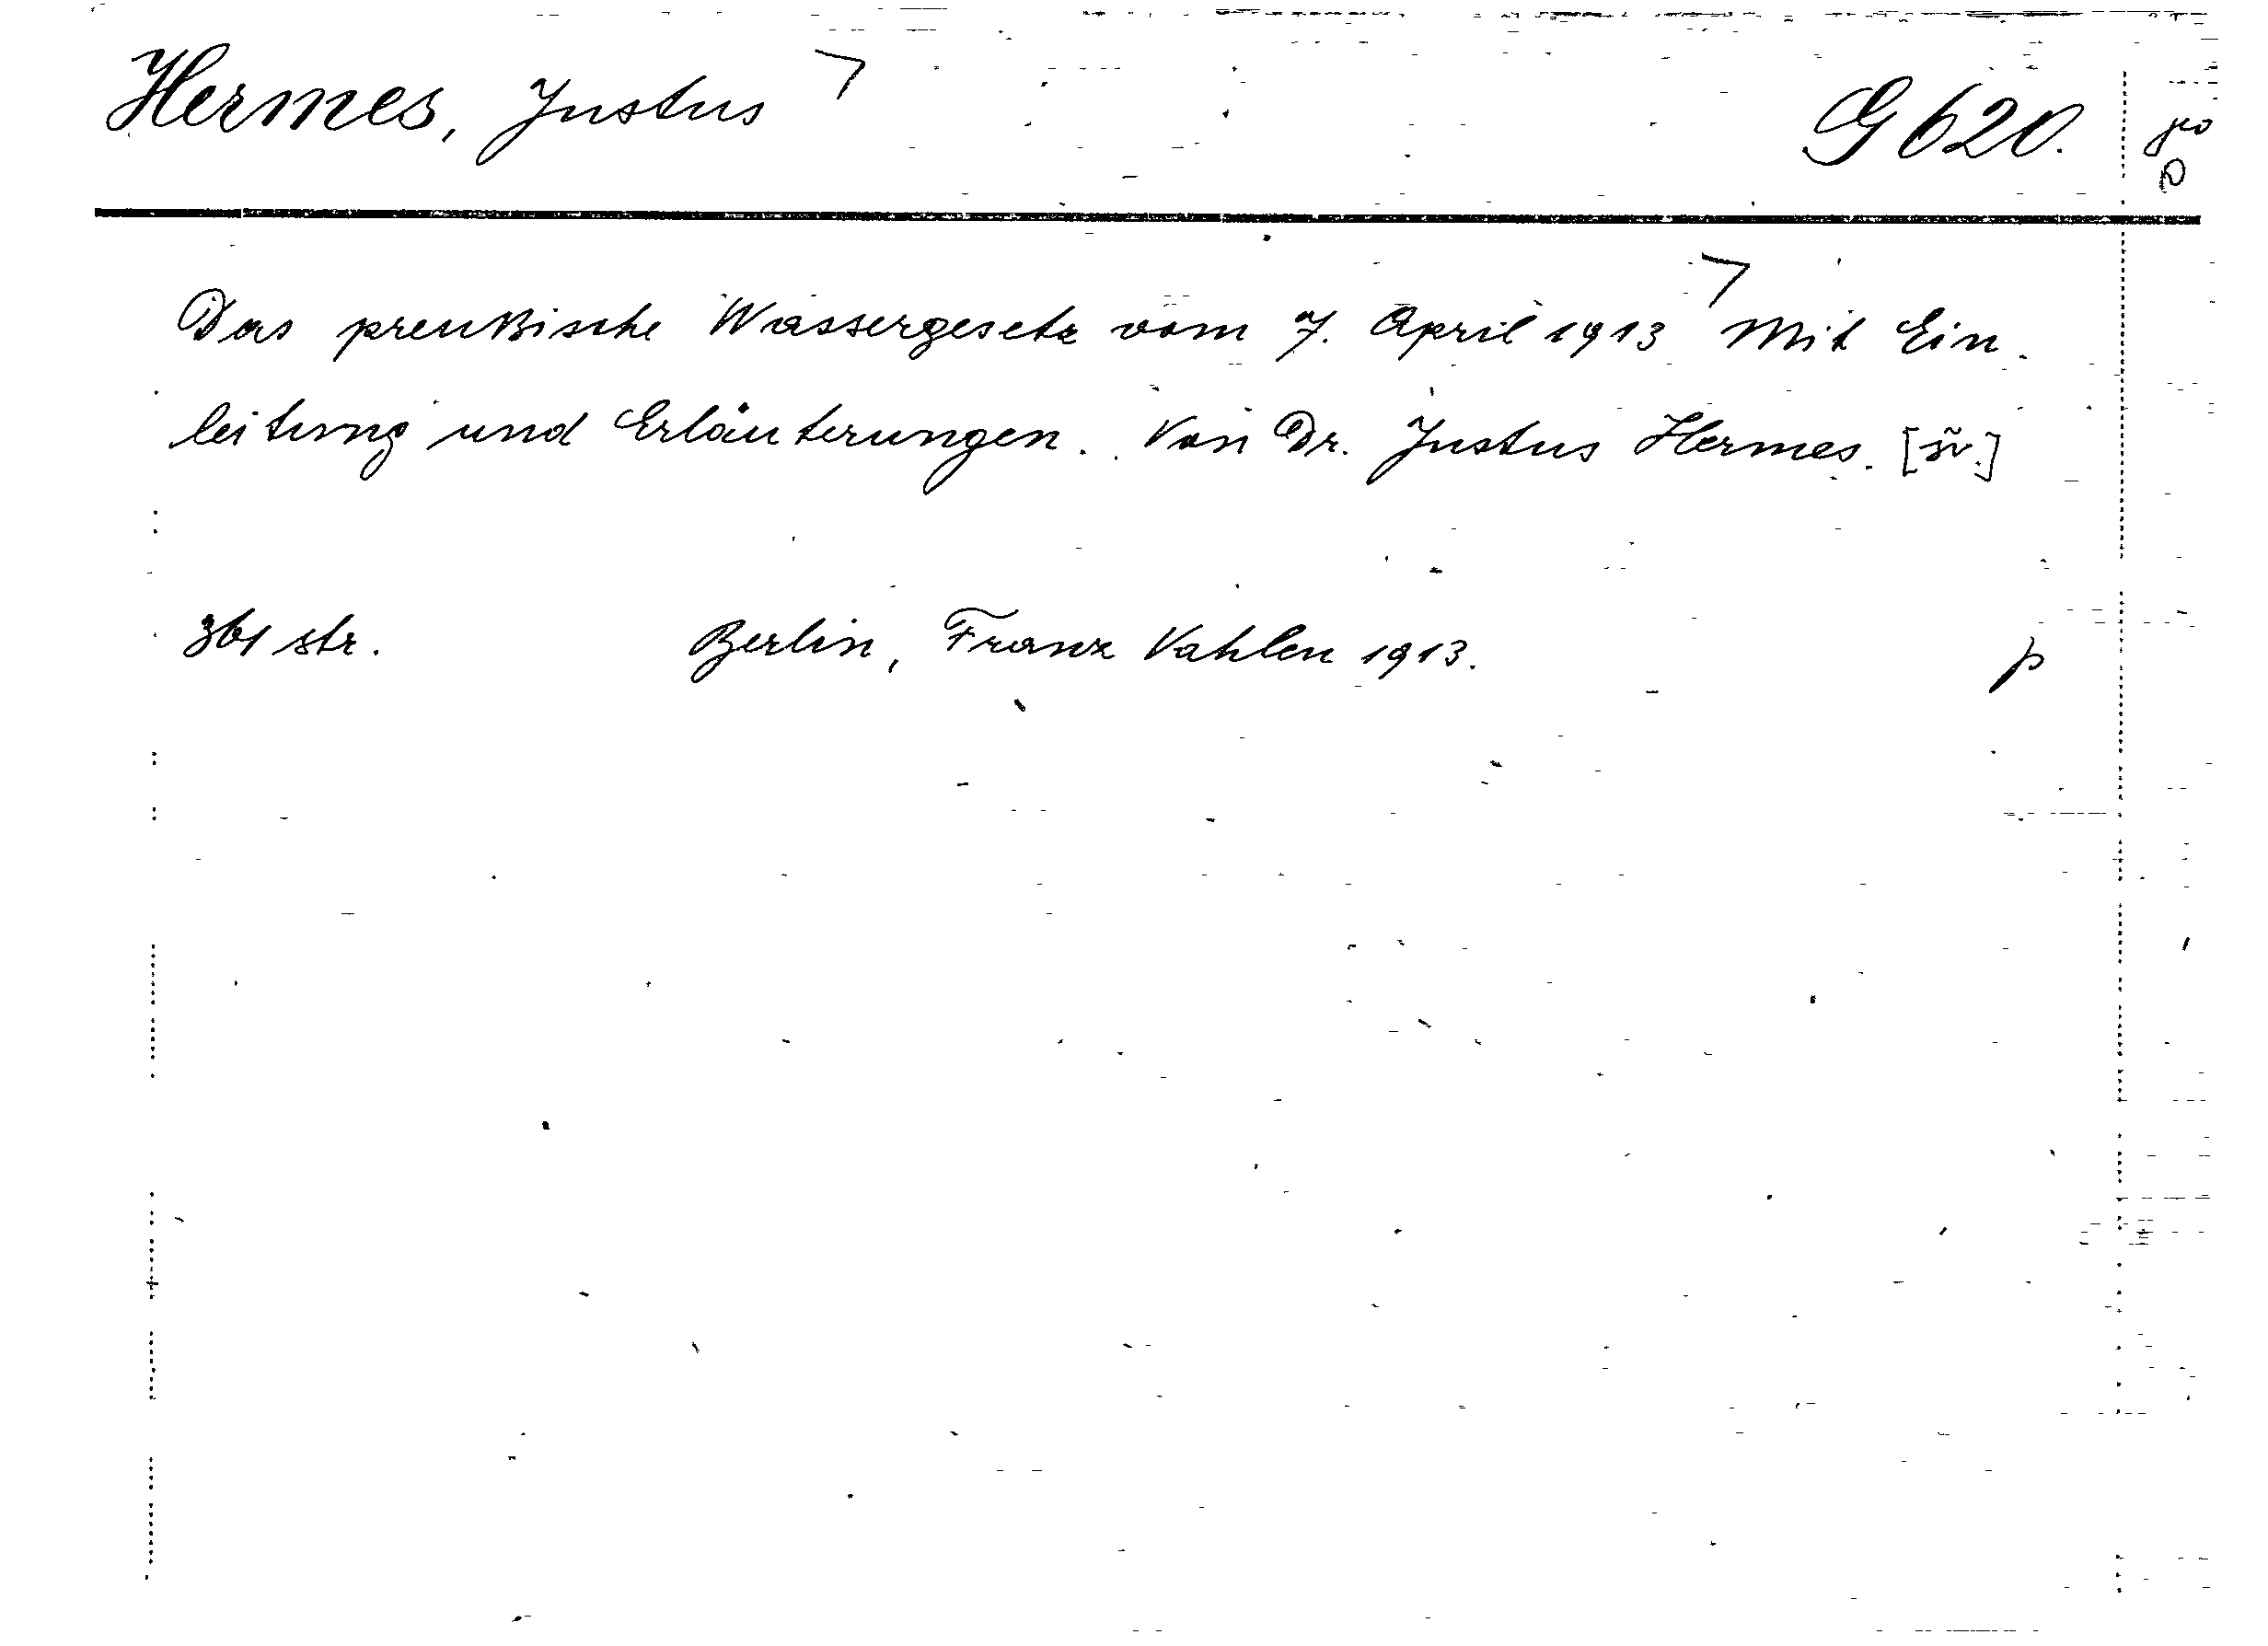 Hermes, Justus
G 620.
Das preußische Wassergesetz vom 7. April 1913 Mit Ein-
leitung und Erläuterungen. Von Dr. Justus Hermes.
361 str. Berlin, Franz Vahlen 1913. p